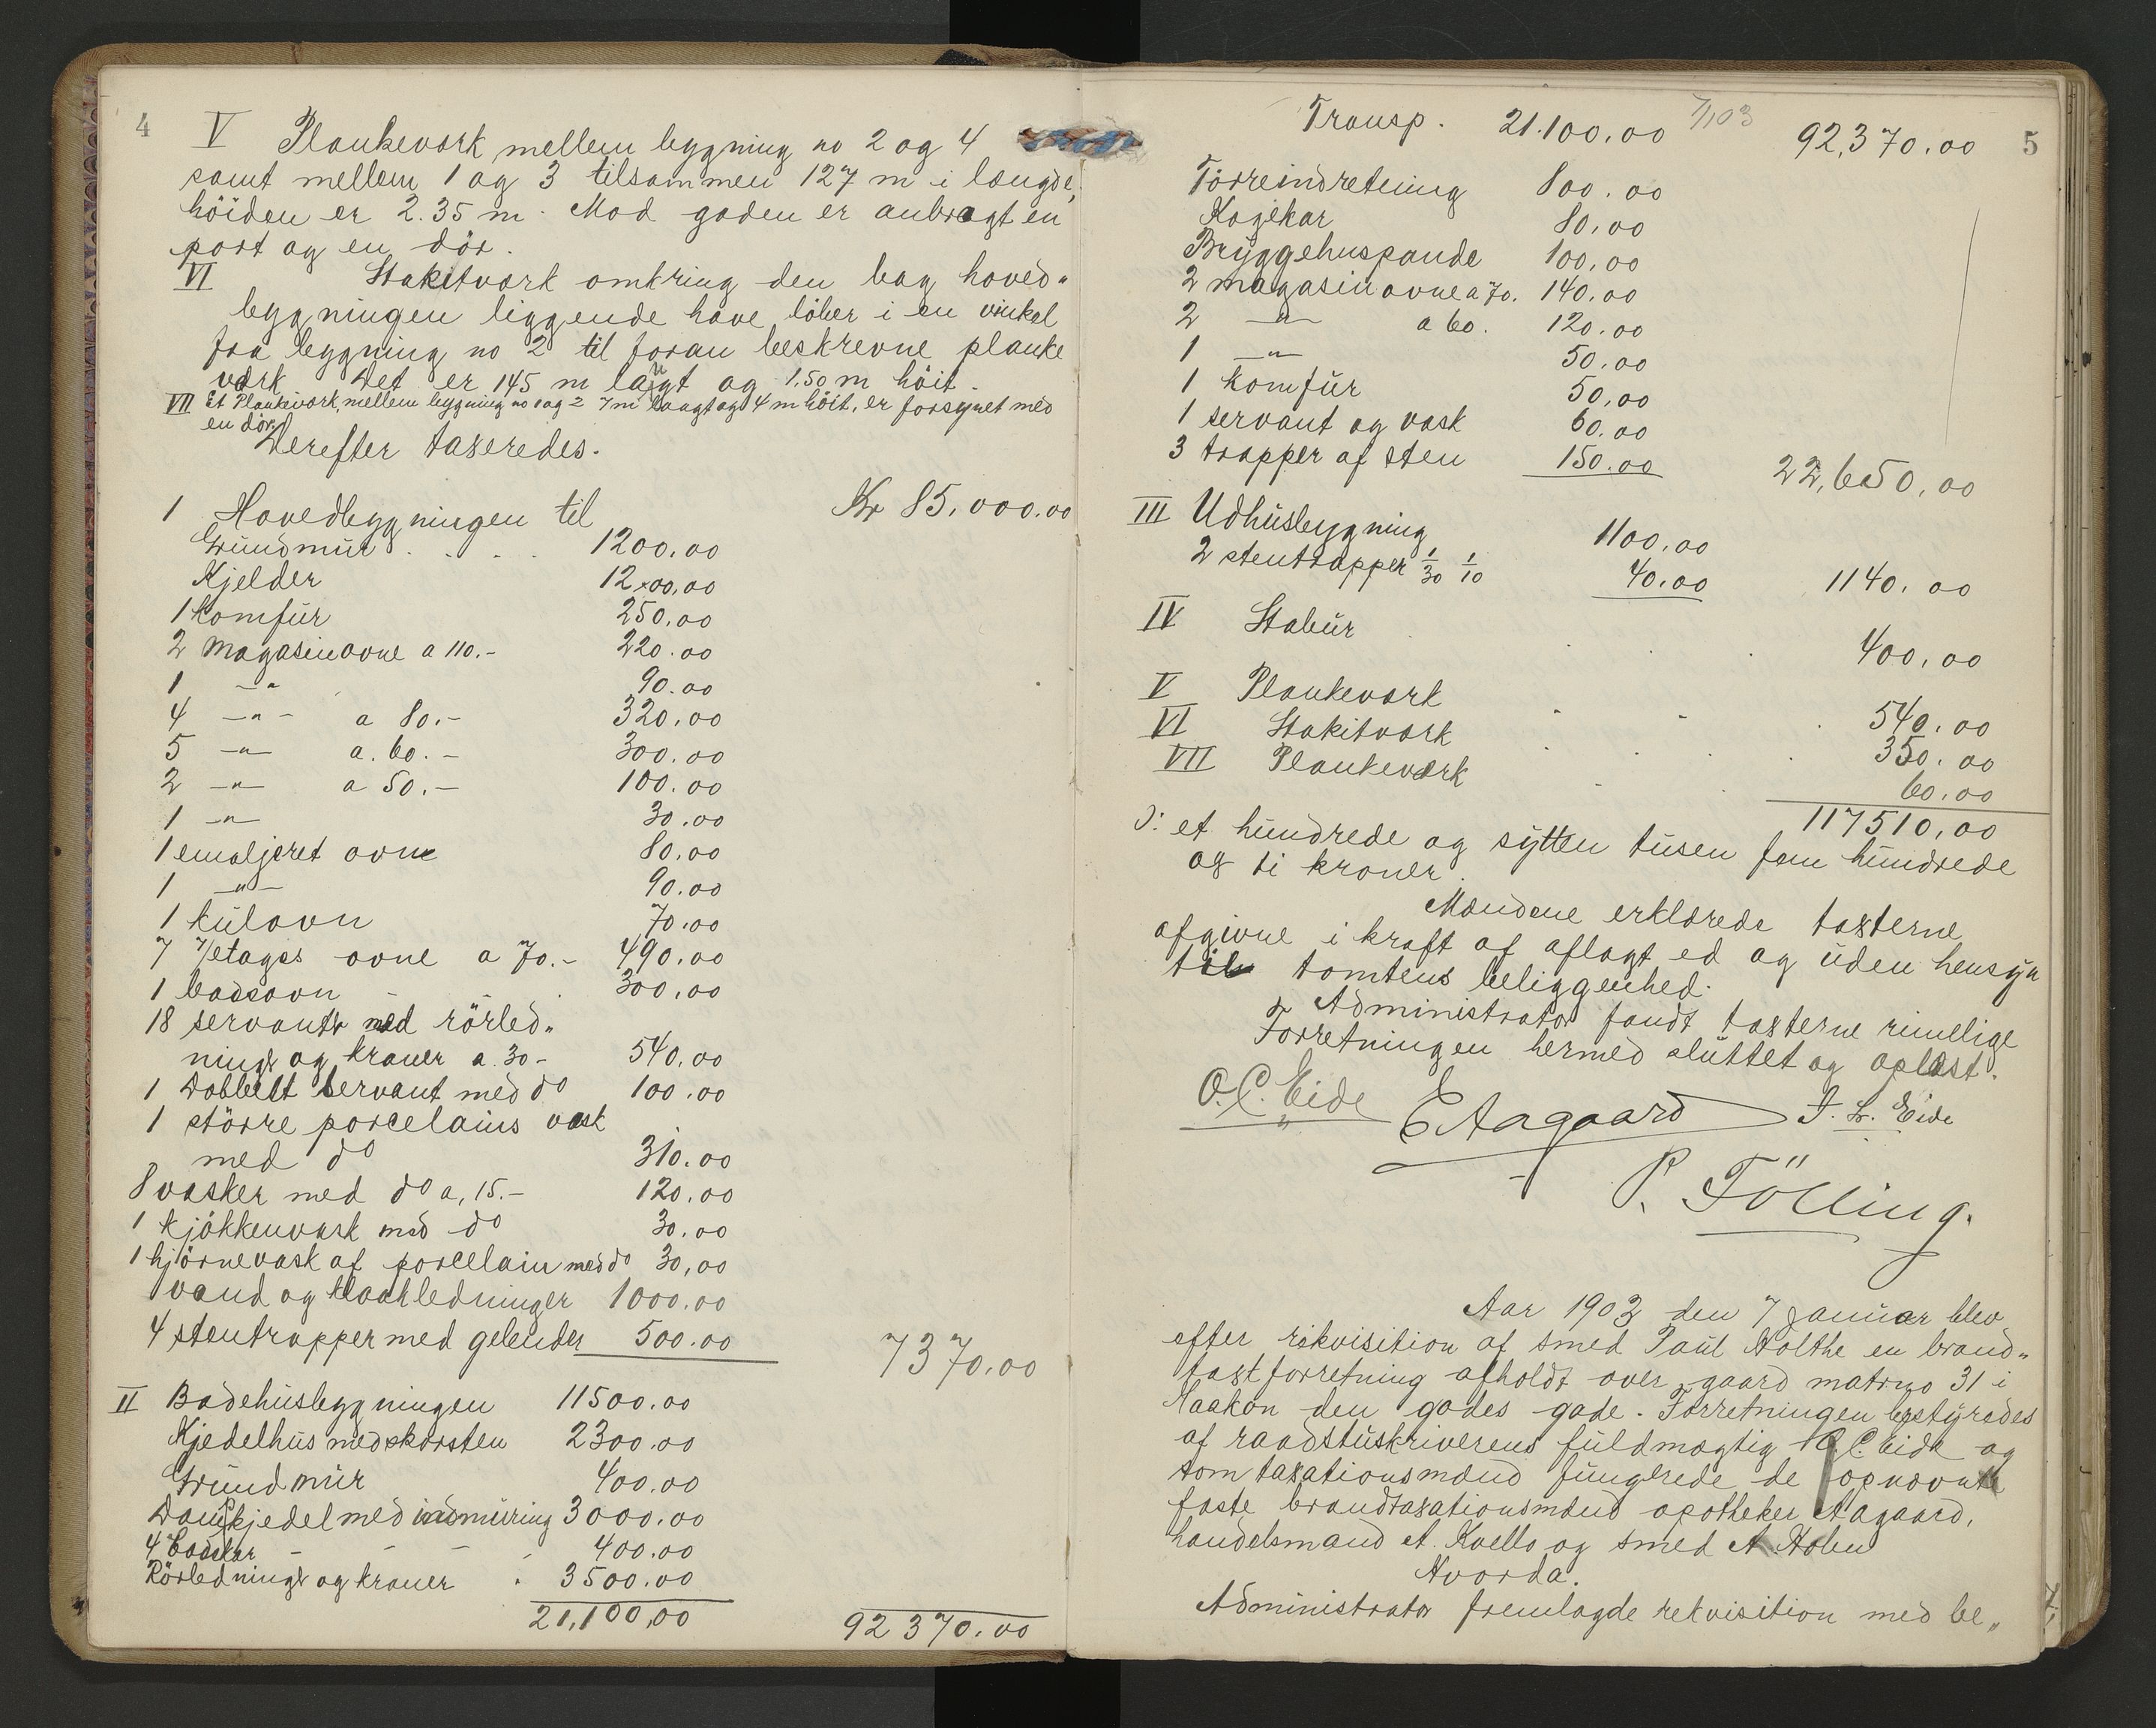 4
V Plankeværk mellem bygning no 2 og 4
samt mellem 1 og 3 tilsammen 127 m i længde,
höiden er 2.35 m. Mod gaden er anbragt en
port og en dör.
VI Stakitværk omkring den bag hoved„
bygningen liggende have löber i en vinkel
fra bygning no 2 til foran beskrevne planke
værk Det er 145 m langt og 1,50 m höit.
VII Et Plankeværk, mellem bygning no 1 og 2 7 m langt og 4 m höit, er forsynet med
en dör.
Derefter taxeredes.
1 Hovedbygningen til Kr 85,000.00
Grundmur . . . . 1200,00
Kjelder 1200,00
1 komfür 250,00
2 magasinovne a 110.- 220.00
1 -„- 90.00
4 -„- a 80.- 320,00
5 -„- a. 60.- 300.00
2 -„- a 50.- 100.00
1 -„- 30.00
1 emaljeret ovn 80,00
1 -„- 90.00
1 kulovn 70.00
7 7/etages ovne a 70.- 490.00
1 badeovn - - . 300,00
18 servanter med rörled„
ninger og kraner a 30- 540,00
1 Dobbelt servant med do 100.00
1 större porcelains vask
med do 310.00
8 vasker med do a, 15.- 120.00
1 kjökkenvask med do 30.00
1 hjörnevask af porcelain med do 30,00
Vand og kloakledninger 1000.00
4 stentrapper med gelender 500.00 7370.00
II Badehusbygningen 11500.00
Kjedelhus med skorsten 2300.00
Grundmur 400.00
Dampkjedel med indmuring 3000.00
4 badekar - - - . 400.00
Rörledninger og kraner . 3500.00
21,100,00 92370.00
5
Transp. 21.100,00 7/1 03 92,370.00
Törreindretning 800.00
Kogekar 80,00
Bryggehuspande 100,00
2 magasinovne a 70. 140.00
2 -„- a 60. 120.00
1 -„- 50.00
1 komfür 50,00
1 servant og vask 60.00
3 trapper af sten 150.00 22,650,00
III Udhusbygning 1100,00
2 stentrapper 1/30 1/10 40.00 1140.00
IV Stabür . . . 400,00
V Plankeværk 540.00
VI Stakitværk 350.00
VII Plankeværk 60.00
117510,00
ɔ: et hundrede og sytten tusen fem hundrede
og ti kroner.
Mændene erklærede taxterne
afgivne i kraft af aflagt ed og uden hensyn
til tomtens beliggenhed.
Administrator fandt taxterne rimelige
Forretningen hermed sluttet og oplæst.
O. C. Eide E Aagaard J. L. Eide
P. Fölling.
Aar 1903 den 7 januar blev
efter rekvisition af smed Paul Holthe en brand„
taxtforretning afholdt over gaard matrno 31 i
Haakon den godes gade. Forretningen bestyredes
af raadstuskriverens fuldmægtig O. C. Eide og
som taxationsmænd fungerede de opnævnte
faste brandtaxationsmænd apotheker Aagaard,
handelsmand A. Kvello og smed A. Holen
Hvorda.
Administrator fremlagde rekvisition med be„